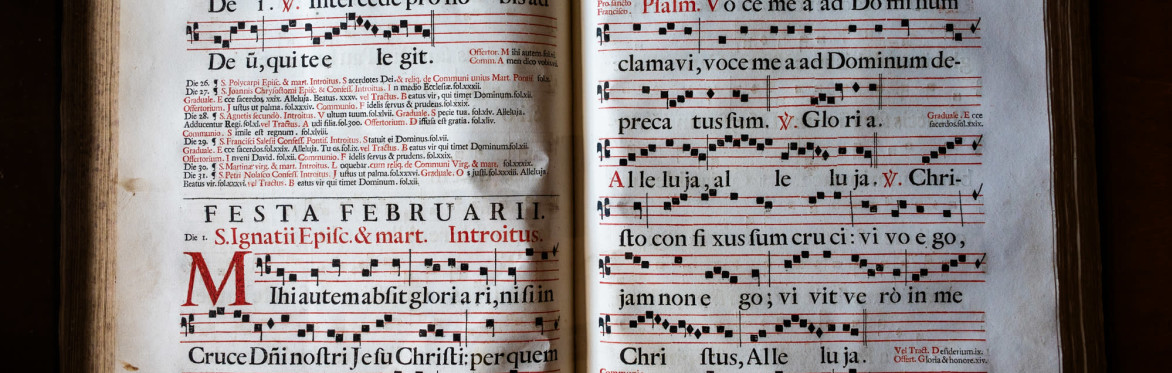 De 1. ℣. Intercede pro no bis ad
De ũ, qui te e le git.
Offertor. M ihi autem
Comm. A men dico vobis
Die 26. ¶ S. Polycarpi Epiſc. & mart. Introitus. S acerdotes Dei. & reliq. de Communi unius Mart. Pontif. fol.
Die 27. ¶ S. Joannis Chryſoſtomi Epiſc. & Confeſſ. Introitus. I n medio Eccleſiæ. fol.xxxii.
Graduale. E cce ſacerdos. xxix. Alleluja. Beatus. xxxv. vel Tractus. B eatus vir, qui timet Dominum. fol.xii.
Offertorium. J uſtus ut palma. fol.xxxiv. Communio. F idelis ſervus & prudens. fol.xxix.
Die 28. ¶ S. Agnetis ſecundò. Introitus. V ultum tuum. fol.xlviii. Graduale. S pecie tua. fol.xlv. Alleluja.
Adducentur Regi. fol.xl. vel Tractus. A udi filia. fol.300. Offertorium. D iffuſa eſt gratia. fol.xliv.
Communio. S imile eſt regnum. fol.xlviii.
Die 29. ¶ S. Franciſci Saleſii Confeſſ. Pontif. Introitus. Statuit ei Dominus. fol.vii.
Graduale. E cce ſacerdos. fol.xxix. Alleluja. Tu es. fol.ix. vel Tractus. B eatus vir qui timet Dominum. fol.xii.
Offertorium. I nveni David. fol.xii. Communio. F idelis ſervus & prudens. fol.xxix.
Die 30. ¶ S. Martinæ virg. & mart. Introitus. L oquebar. cum reliq. de Communi Virg. & mart. fol.xxxix.
Die 31. ¶ S. Petri Nolaſci Confeſſ. Introitus. J uſtus ut palma. fol.xxxvi. Graduale. O s juſti. fol.xxxiii. Alleluja.
Beatus vir. fol.xxxvi. vel Tractus. B eatus vir qui timet Dominum. fol.xii.
FESTA FEBRUARII.
Die 1. S. Ignatii Epiſc. & mart. Introitus.
MIhi autem abſit glori a ri, ni ſi in
Cruce Dñi noſtri Jeſu Chriſti: per quem
Pro ſancto
Franciſco.
Pſalm. V o ce me a ad Do mi num
clamavi, voce me a ad Dominum de-
preca tus ſum. ℣. Glo ri a.
Graduale. E cce
ſacerdos. fol.xxix.
Al le lu ja, al le lu ja. ℣. Chri-
ſto con fi xus ſum cru ci: vi vo e go,
jam non e go; vi vit ve rò in me
Chri ſtus, Alle lu ja.
Vel Tract. D eſiderium. ix.
Offert. G loria & honore. xiv.
Communio